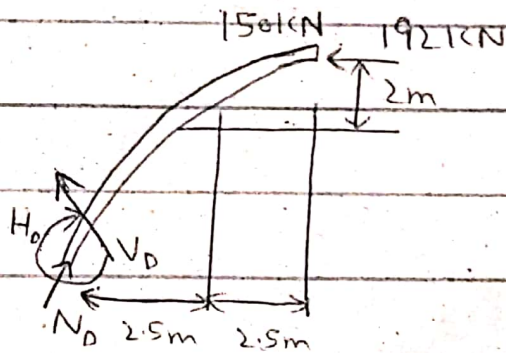 150KN 192KN
2m
H₀ V_D
N_D 2.5m 2.5m